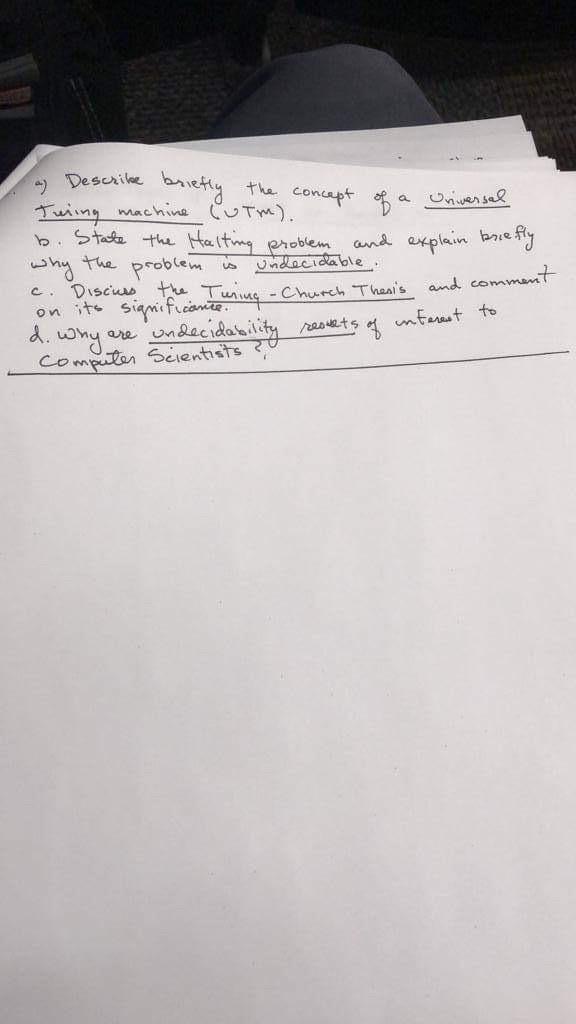 a) Describe briefly the concept of a Universal
Turing machine (UTM).
b. State the Halting problem and explain briefly
why the problem is undecidable.
c. Discuss the Turing-Church Thesis and comment
on its significance.
d. Why are undecidability results of interest to
Computer Scientists?